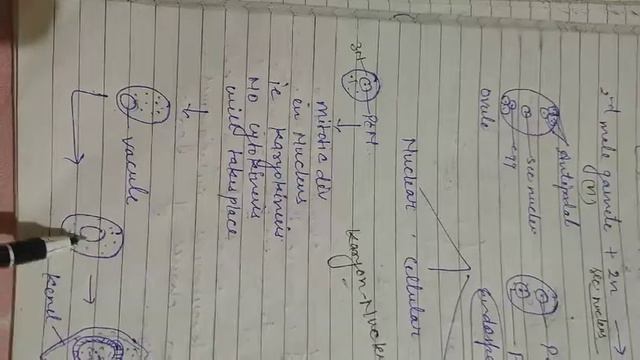 2nd male gamete + 2n →
(n) sec nucleus
Antipodal
sec nuclei
egg
ovule
Endosp
Nuclear
Cellular
Karyon - Nucle
3n
PEN
mitotic div
in Nucleus
ie karyokinesis
No cytokinesis
will takes place
vacule
Kernel